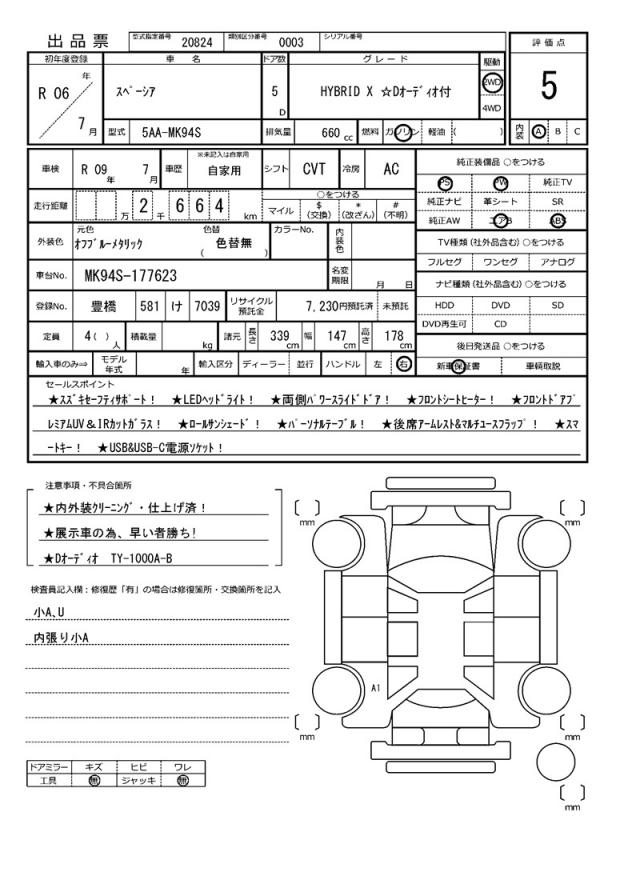 出品票 型式指定番号 20824 類別区分番号 0003 シリアル番号
初年度登録 車名 ドア数 グレード 駆動 評価点
R 06 年 7 月 ｽﾍﾟｰｼｱ 5 D HYBRID X ☆Dｵｰﾃﾞｨｵ付 2WD 4WD 5
型式 5AA-MK94S 排気量 660 cc 燃料 ガソリン 軽油 ( ) 内装 A B C
車検 R 09 年 7 月 車歴 ※未記入は自家用 自家用 シフト CVT 冷房 AC
純正装備品 ○をつける
PS PW 純正TV
走行距離 万 2 千 6 6 4 km ○をつける マイル $(交換) *(改ざん) #(不明)
純正ナビ 革シート SR
純正AW エアB ABS
外装色 元色 ｵﾌﾌﾞﾙｰﾒﾀﾘｯｸ 色替 ( 色替無 ) カラーNo. 内装色
TV種類(社外品含む) ○をつける
フルセグ ワンセグ アナログ
車台No. MK94S-177623 名変期限 月 日
ナビ種類(社外品含む) ○をつける
登録No. 豊橋 581 け 7039 リサイクル預託金 7,230円預託済 未預託
HDD DVD SD
DVD再生可 CD
定員 4( ) 人 積載量 kg 諸元 長さ 339 cm 幅 147 cm 高さ 178 cm
後日発送品 ○をつける
輸入車のみ⇒ モデル年式 年 輸入区分 ディーラー 並行 ハンドル 左 右
新車保証書 車輌取説
セールスポイント
★ｽｽﾞｷｾｰﾌﾃｨｻﾎﾟｰﾄ！ ★LEDﾍｯﾄﾞﾗｲﾄ！ ★両側ﾊﾟﾜｰｽﾗｲﾄﾞﾄﾞｱ！ ★ﾌﾛﾝﾄｼｰﾄﾋｰﾀｰ！ ★ﾌﾛﾝﾄﾄﾞｱﾌﾟ
ﾚﾐｱﾑUV＆IRｶｯﾄｶﾞﾗｽ！ ★ﾛｰﾙｻﾝｼｪｰﾄﾞ！ ★ﾊﾟｰｿﾅﾙﾃｰﾌﾞﾙ！ ★後席ｱｰﾑﾚｽﾄ&ﾏﾙﾁﾕｰｽﾌﾗｯﾌﾟ！ ★ｽﾏ
ｰﾄｷｰ！ ★USB&USB-C電源ｿｹｯﾄ！
注意事項・不具合箇所
★内外装ｸﾘｰﾆﾝｸﾞ・仕上げ済！
★展示車の為、早い者勝ち!
★Dｵｰﾃﾞｨｵ TY-1000A-B
検査員記入欄：修復歴「有」の場合は修復箇所・交換箇所を記入
小A､U
内張り小A
[ ] mm
[ ] mm
A1
[ ] mm
[ ] mm
[ ] mm
ドアミラー キズ ヒビ ワレ
工具 無 ジャッキ 無